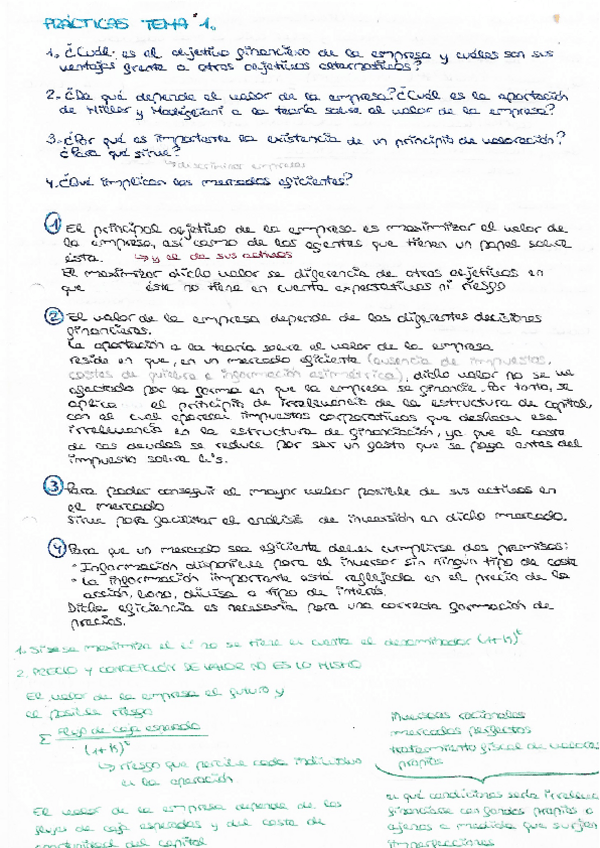 PRÁCTICAS TEMA 1.
1. ¿Cuál es el objetivo financiero de la empresa y cuáles son sus
ventajas frente a otros objetivos alternativos?
2. ¿De qué depende el valor de la empresa? ¿Cuál es la aportación
de Miller y Modigliani a la teoría sobre el valor de la empresa?
3. ¿Por qué es importante la existencia de un principio de valoración?
¿Para qué sirve?
↳ discriminar empresas
4. ¿Qué implican los mercados eficientes?
① El principal objetivo de la empresa es maximizar el valor de
la empresa, así como de los agentes que tienen un papel sobre
ésta. ↳ y el de sus activos
El maximizar dicho valor se diferencia de otros objetivos en
que éste no tiene en cuenta expectativas ni riesgo
② El valor de la empresa depende de las diferentes decisiones
financieras.
La aportación a la teoría sobre el valor de la empresa
reside en que, en un mercado eficiente (ausencia de impuestos,
costes de quiebra e información asimétrica), dicho valor no se ve
afectado por la forma en que la empresa se financie. Por tanto, se
aplica el principio de irrelevancia de la estructura de capital,
con el cual aparecen impuestos corporativos que deshacen esa
irrelevancia en la estructura de financiación, ya que el coste
de las deudas se reduce por ser un gasto que se paga antes del
impuesto sobre b's.
③ Para poder conseguir el mayor valor posible de sus activos en
el mercado
Sirve para facilitar el análisis de inversión en dicho mercado.
④ Para que un mercado sea eficiente deben cumplirse dos premisas:
• Información disponible para el inversor sin ningún tipo de coste
• La información importante está reflejada en el precio de la
acción, bono, divisa o tipo de interés.
Dicha eficiencia es necesaria para una correcta formación de
precios.
1. Si se maximiza el b° no se tiene en cuenta el denominador (1+k)^t
2. PRECIO Y CONCEPCIÓN DE VALOR NO ES LO MISMO
El valor de la empresa el futuro y
el posible riesgo
Σ Flujo de caja esperado
(1+k)^t
↳ riesgo que percibe cada individuo
en la operación
El valor de la empresa depende de los
flujos de caja esperados y del coste de
oportunidad del capital
Inversores racionales
mercados perfectos
tratamiento fiscal de
propios
en qué condiciones sería irrelevante
financiarse con fondos propios o
ajenos a medida que surjan
imperfecciones